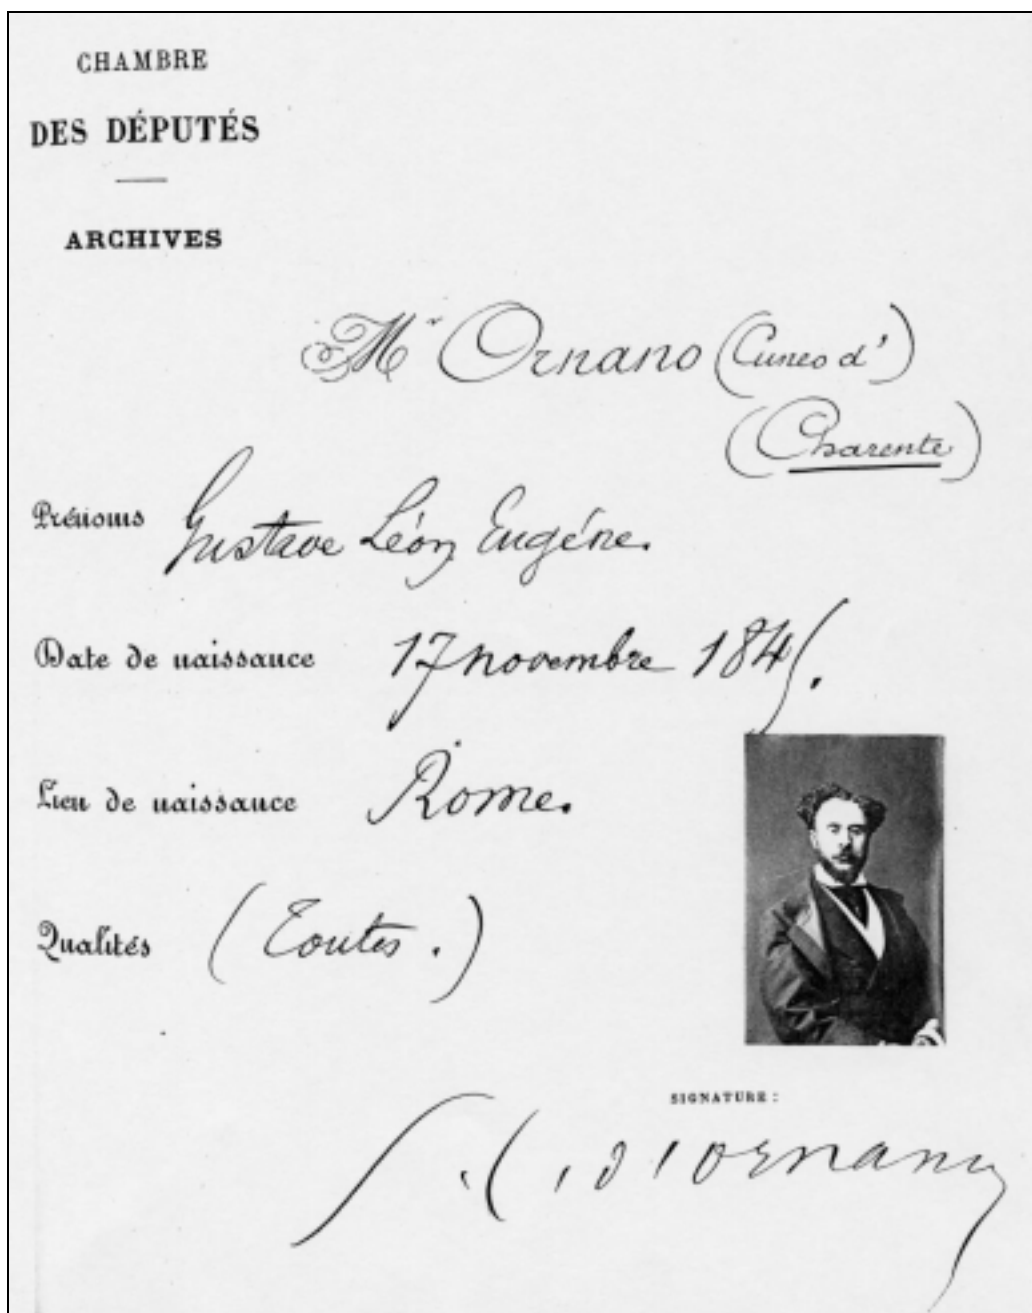 CHAMBRE
DES DÉPUTÉS
ARCHIVES
Mr Ornano (Cuneo d')
(Charente)
Prénoms Gustave Léon Eugéne.
Date de naissance 17 novembre 1845.
Lieu de naissance Rome.
Qualités (Toutes.)
SIGNATURE :
d'ornano